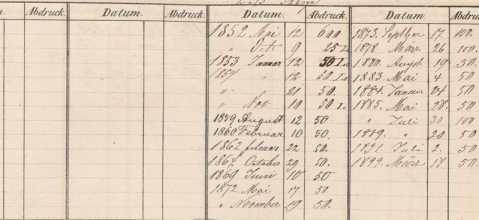 Abdruck. Datum. Abdruck. Datum. Abdruck. Datum. Abdruck.
1852 Mai 12 600
" Oct. 9 25
1853 Januar 12 50
" 12 50
" 21 50.
" Nov. 10 50
1859 August 12 50
1860 Februar 10 50.
1862 22 50.
1862 October 29 50.
1869 Juni 10 50
1872 Mai 17 50
" November 19 50.
1873. 17. 100.
1878 März 26 100.
1880 August 19. 50.
1883. Mai 4 50.
1884. Januar 24 50.
1885. Mai 28. 50.
" Juli 30 100
1889. " 20 50.
1891. Juli 2. 50.
1899. März 18. 50.